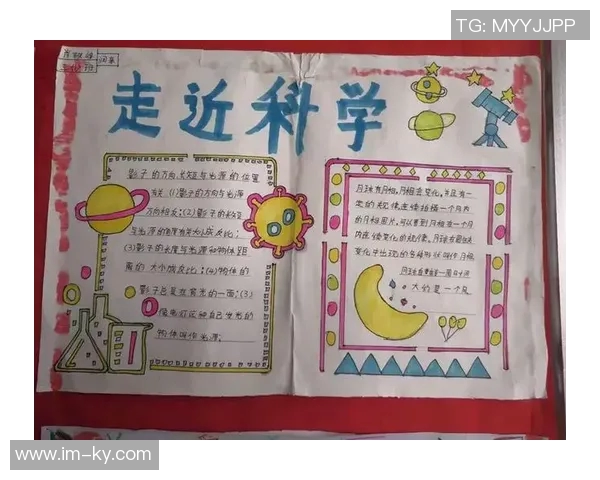 TG: MYYJJPP
走近科学
影子的方向,长短与光源的位置
有关:(1)影子的方向与光源
方向相反;(2)影子的长短
与光源的高度有关
(3)影子的长度与光源和物体距
离的大小成反比;(4)物体的
影子总是在背光的一面;(5)
像我们这种自己发光的
物体叫作光源;
月球有月相,月相会变化,并且有一
定的规律
的月相图片,可以看到月相在一个月
内逐渐变化的规律。
变化中出现的各种形状叫作月相
大约是一个月
www.im-ky.com